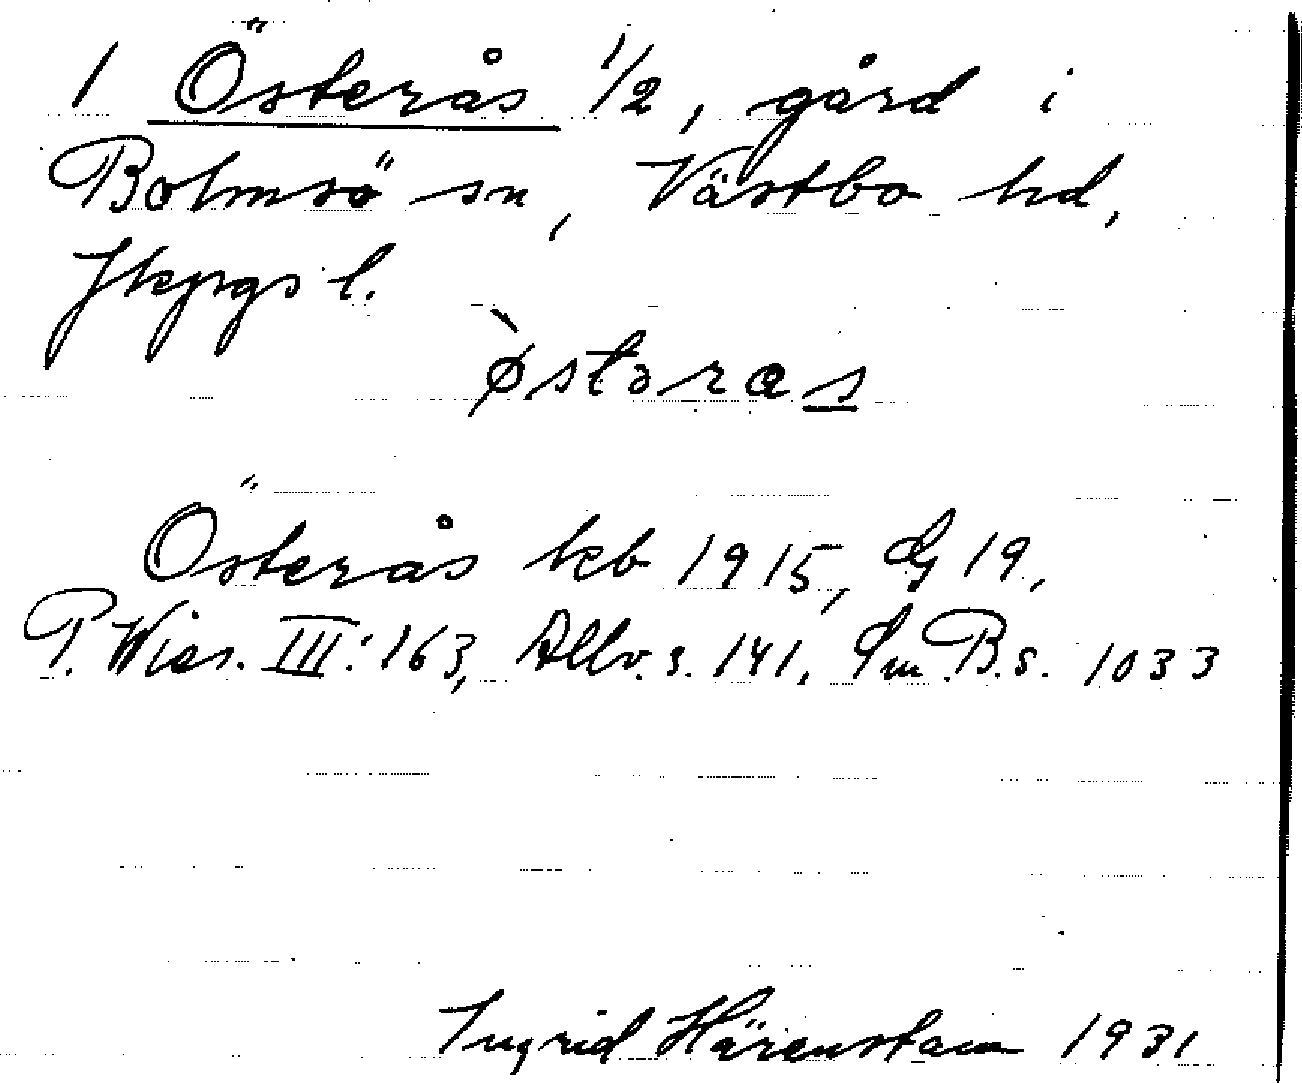 1 Österås 1/2, gård i
Bolmsö sn, Västbo hd,
Jkpgs l.
̀østəras
Österås kb 1915, G 19,
P. Wies. III:163, Allv. s. 141, Sm B. s. 1033
Ingrid Härenstam 1931